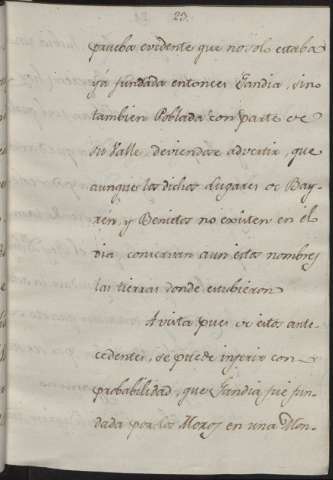 23.
prueba evidente que no solo estaba
ya fundada entonces Gandia, sino
tambien Poblada con parte de
su Valle, deviendose advertir, que
aunque los dichos Lugares de Bay-
rèn, y Benietos no existen en el
dia, conservan aun estos nombres
las tierras donde estubieron.
A vista pues de estos ante-
cedentes, se puede inferir con
probabilidad, que Gandia fué fun-
dada por los Moros en una Mon-